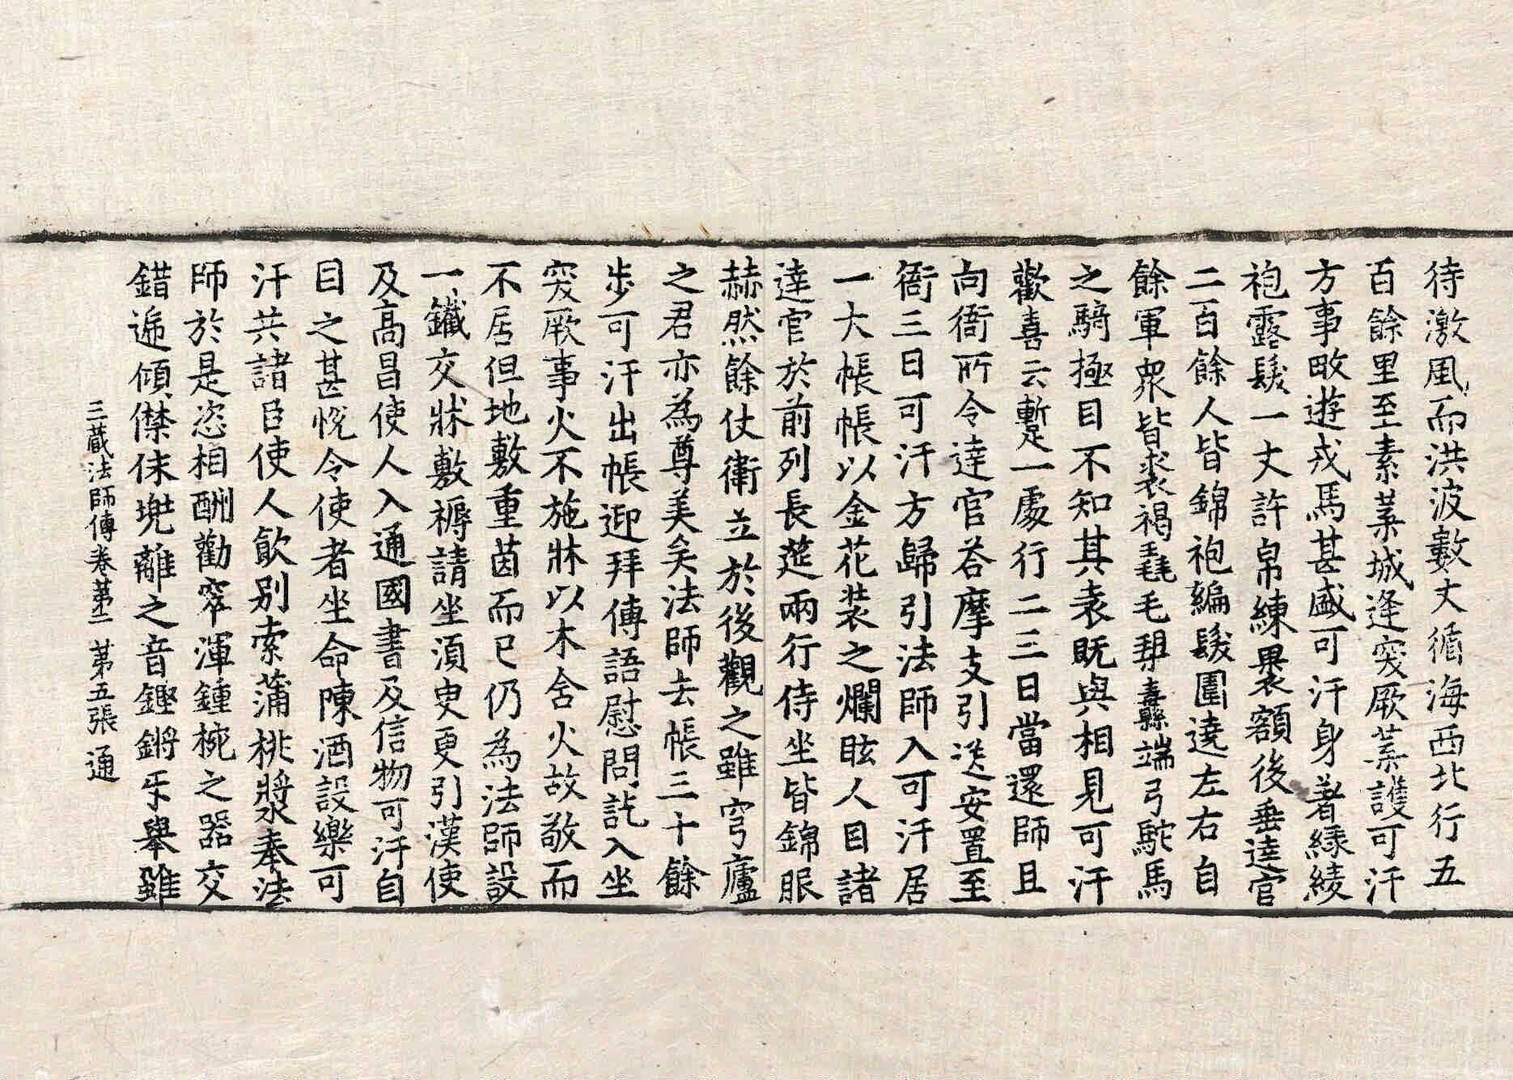 待激風而洪波數丈循海西北行五
百餘里至素葉城逢突厥葉護可汗
方事畋遊戎馬甚盛可汗身著綠綾
袍露髮一丈許帛練裹額後垂達官
二百餘人皆錦袍編髮圍遶左右自
餘軍衆皆裘褐毳毛槊纛端弓駝馬
之騎極目不知其表既與相見可汗
歡喜云暫一處行二三日當還師且
向衙所令達官荅摩支引送安置至
衙三日可汗方歸引法師入可汗居
一大帳帳以金花裝之爛眩人目諸
達官於前列長筵兩行侍坐皆錦服
赫然餘仗衛立於後觀之雖穹廬
之君亦為尊美矣法師去帳三十餘
步可汗出帳迎拜傳語慰問訖入坐
突厥事火不施牀以木含火故敬而
不居但地敷重茵而已仍為法師設
一鐵交牀敷褥請坐須臾更引漢使
及高昌使人入通國書及信物可汗自
目之甚悅令使者坐命陳酒設樂可
汗共諸臣使人飲別索蒲桃漿奉法
師於是恣相酬勸窣渾鍾椀之器交
錯遞傾傑佅兜離之音鏗鏘乐舉雖
三藏法師傳卷苐二 苐五張 通